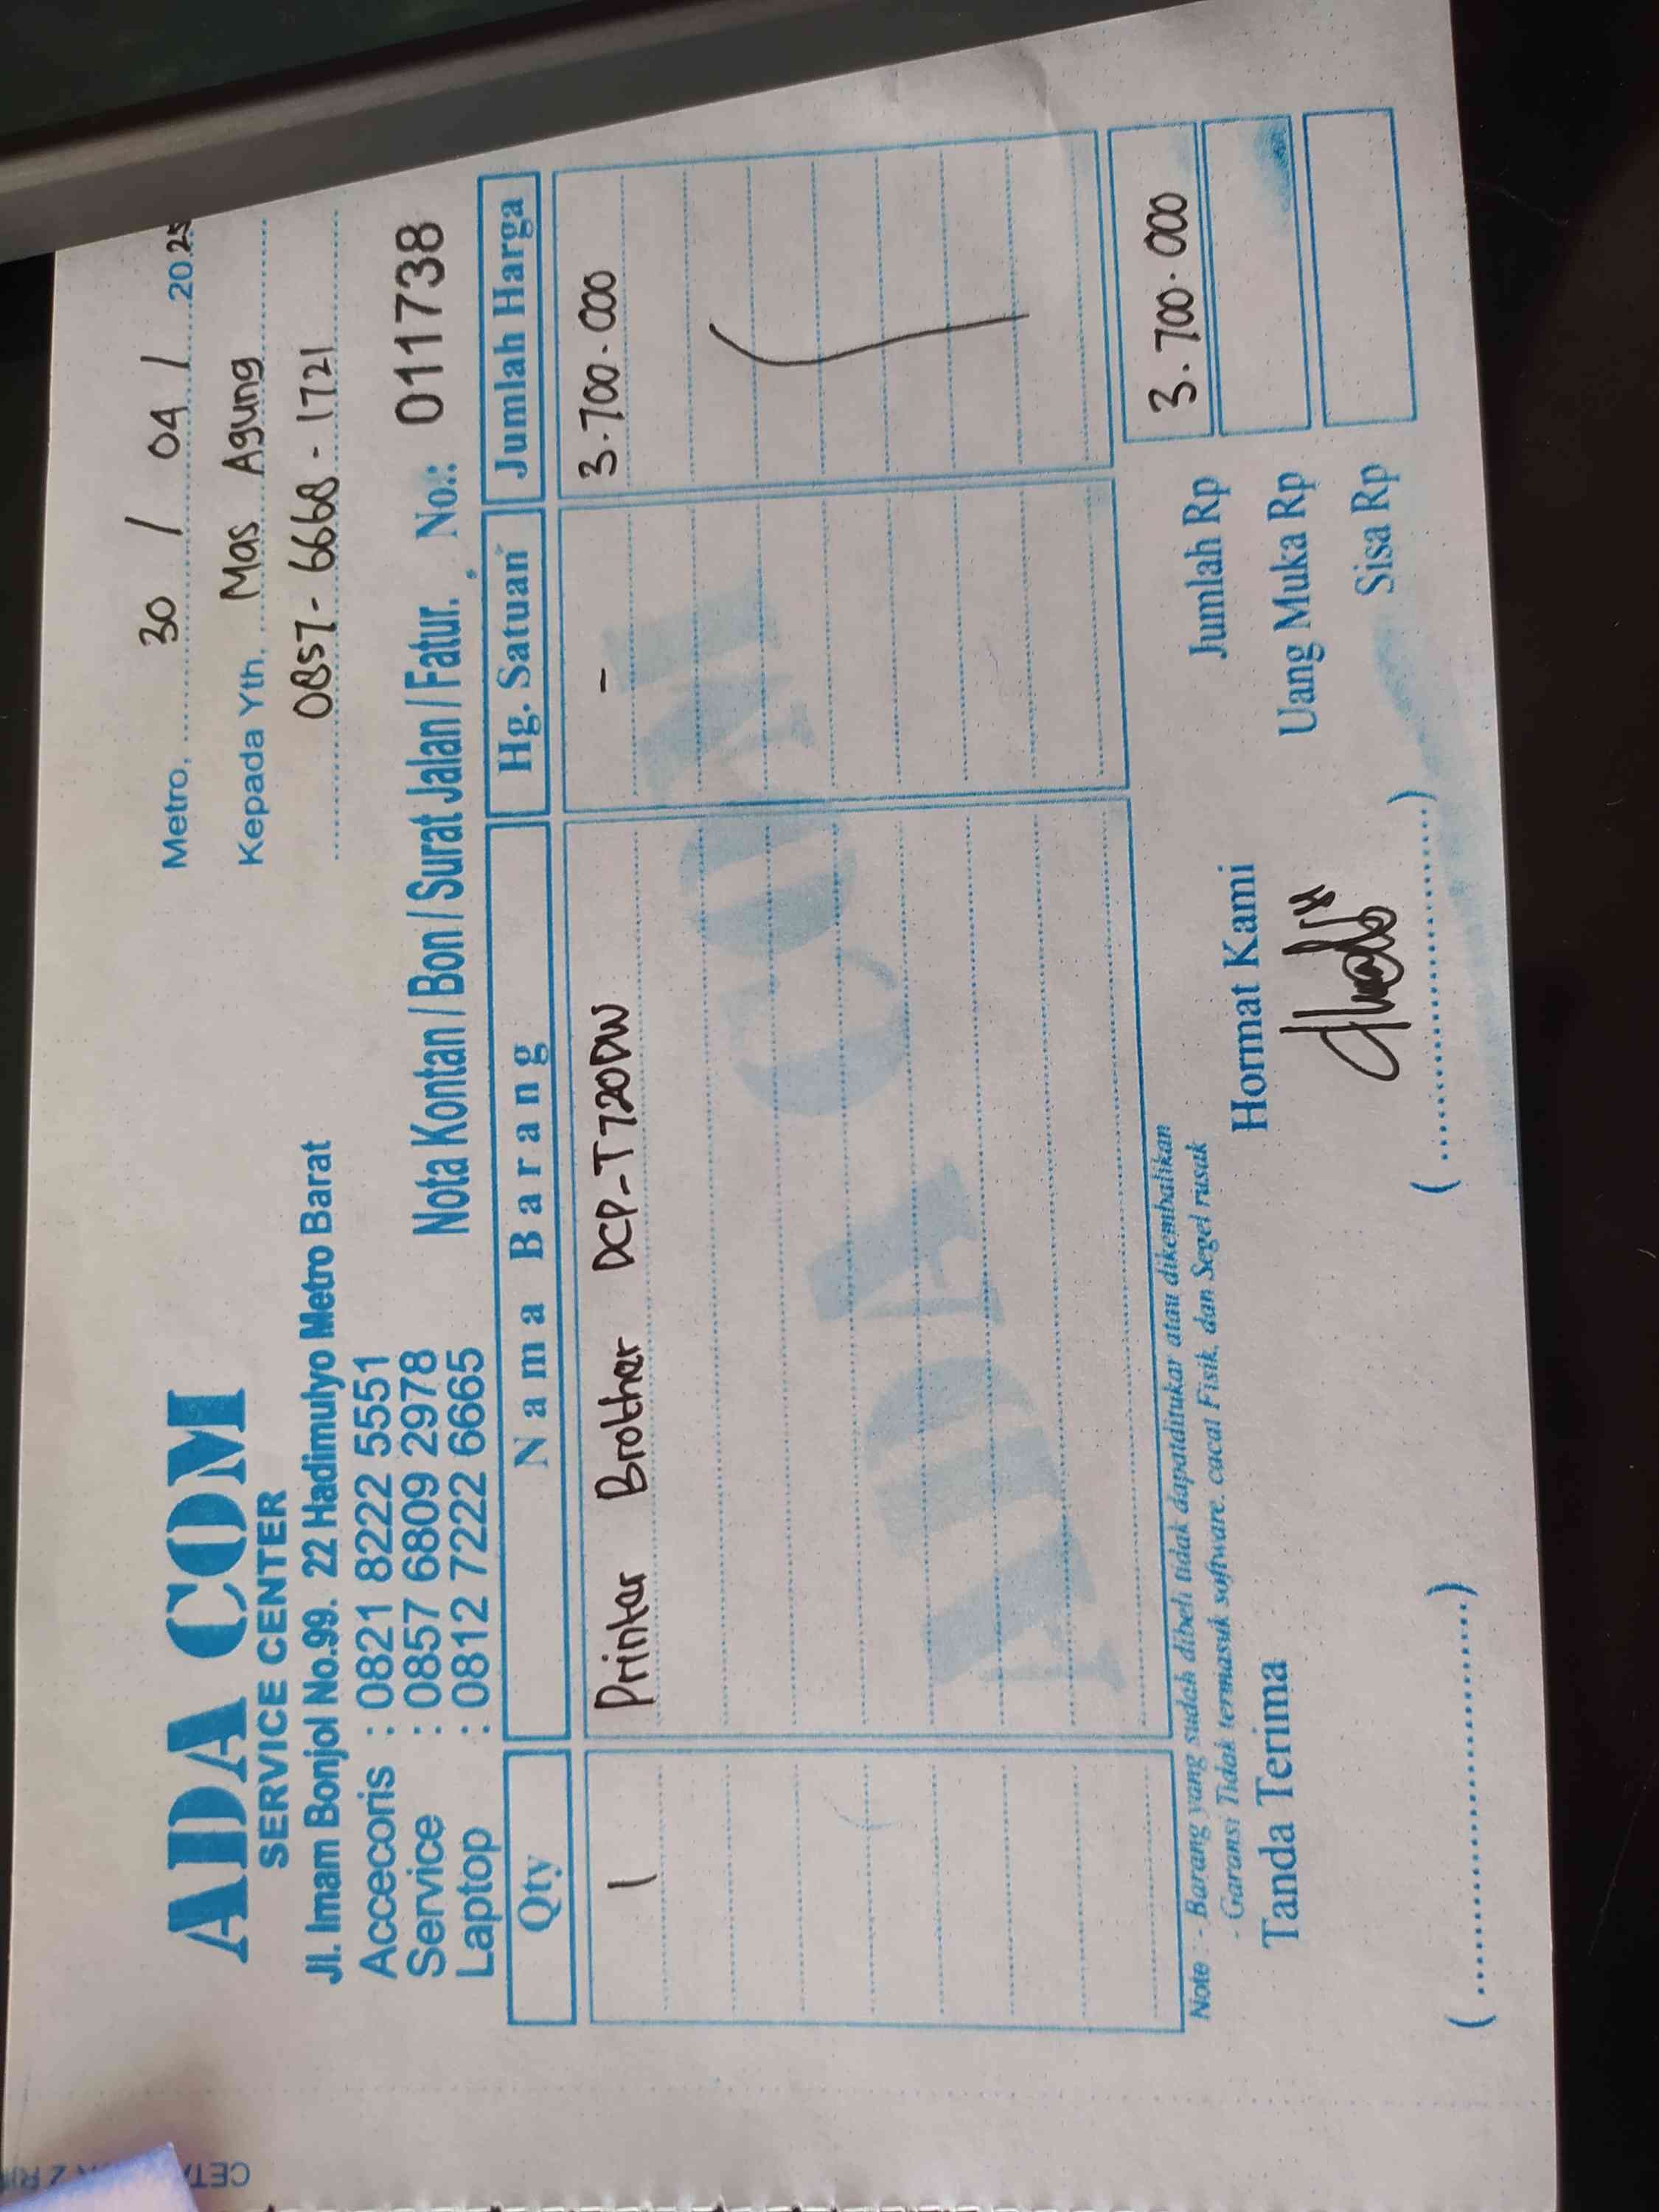 ADA COM
SERVICE CENTER
Jl. Imam Bonjol No.99. 22 Hadimulyo Metro Barat
Accecoris : 0821 8222 5551
Service : 0857 6809 2978
Laptop : 0812 7222 6665
Metro, 30 / 04 / 2025
Kepada Yth, Mas Agung
0857-6668-1721
Nota Kontan / Bon / Surat Jalan / Fatur. No.: 011738
Qty Nama Barang Hg. Satuan Jumlah Harga
1 Printer Brother DCP-T720DW - 3.700.000
ADA COM
Note : - Barang yang sudah dibeli tidak dapatditukar atau dikembalikan
- Garansi Tidak termasuk software, cacat Fisik, dan Segel rusak
Jumlah Rp 3.700.000
Uang Muka Rp
Sisa Rp
Tanda Terima Hormat Kami
(....................) (....................)